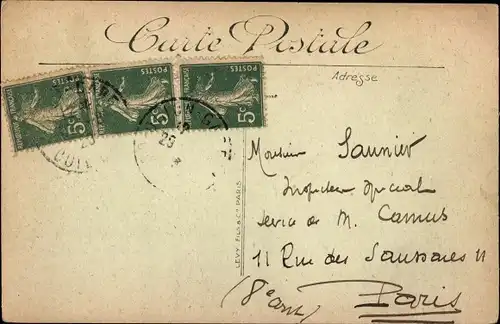 Carte Postale
Adresse
POSTES 5c
POSTES 5c
POSTES 5c
GARE
LEVY FILS & Cie PARIS
Monsieur Saunier
Inspecteur spécial
Service de M. Camus
11 Rue des Saussaies 11
(8e arrt) Paris